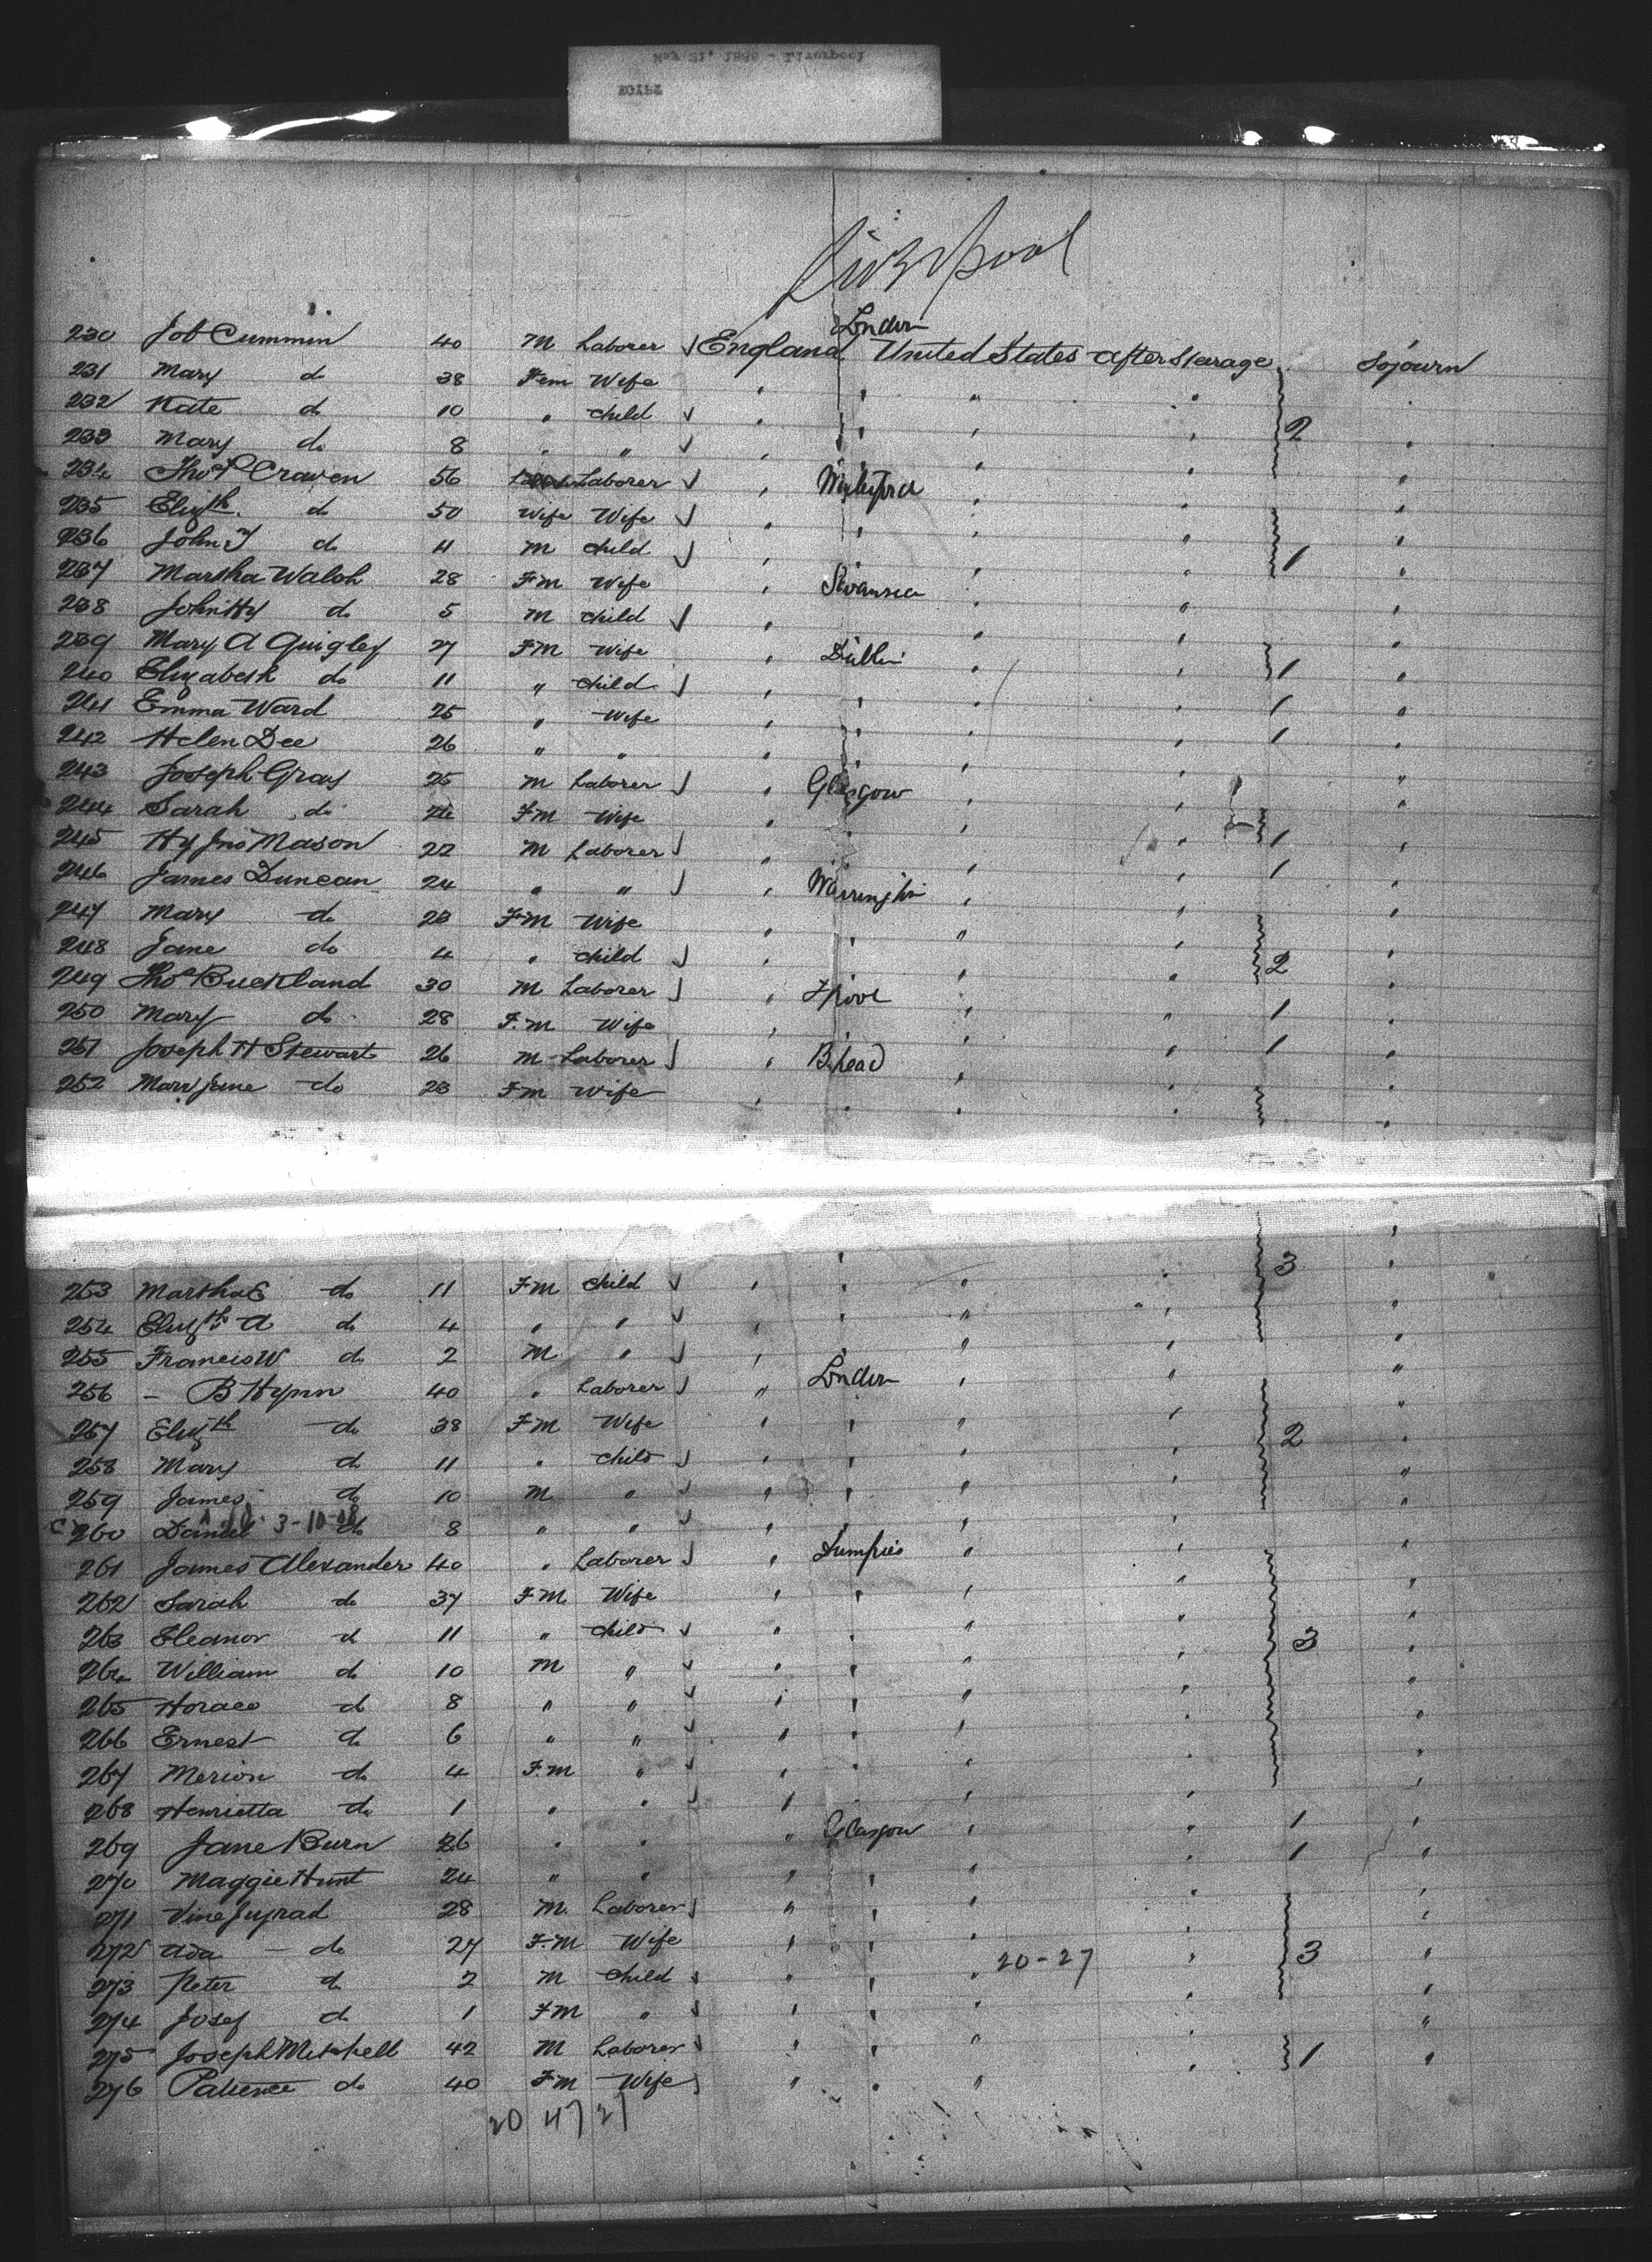 Liverpool
230 Job Cummin 40 M Laborer England London United States After Steerage Sojourn
231 Mary do 38 Fem Wife " " " " "
232 Kate do 10 " child " " " " 2 "
233 Mary do 8 " " " " " " "
234 Thos P Craven 56 Laborer " " " "
235 Elizth do 50 Wife Wife " " " " "
236 John J do 11 M child " " " " 1 "
237 Martha Walsh 28 F M Wife " Swansea " " "
238 John Hy do 5 M child " " " "
239 Mary A Quigley 27 F M Wife " Dublin " " "
240 Elizabeth do 11 " child " " " " 1 "
241 Emma Ward 25 " Wife " " " " 1 "
242 Helen Dee 26 " " " " " " 1 "
243 Joseph Gray 25 M Laborer " Glasgow " " "
244 Sarah do 24 F M Wife " " " "
245 Hy Jno Mason 22 M Laborer " " " 1 "
246 James Duncan 24 " " " " " 1 "
247 Mary do 23 F M Wife " " " " "
248 Jane do 4 " child " " " 2 "
249 Thos Buckland 30 M Laborer " L'pool " " 1 "
250 Mary do 28 F.M Wife " " " 1 "
251 Joseph H Stewart 26 M Laborer " B.head " " "
252 Mary Jane do 23 F M Wife " " " " "
3
253 Martha E do 11 F M child " " " " "
254 Elizth A do 4 " " " " " " "
255 Francis W do 2 M " " " " " "
256 - B Hynn 40 " Laborer " London " " "
257 Elizth do 38 F M Wife " " " " 2 "
258 Mary do 11 " child " " " " "
259 James do 10 M " " " " " "
3-10-
260 Daniel do 8 " " " " " " "
261 James Alexander 40 " Laborer " Dumfries " " "
262 Sarah do 37 F M Wife " " " " "
263 Eleanor do 11 " child " " " " 3 "
264 William do 10 M " " " " " "
265 Horace do 8 " " " " " " "
266 Ernest do 6 " " " " " " "
267 Merion do 4 F.M " " " " " "
268 Henrietta do 1 " " " " " " "
269 Jane Burn 26 " " " Glasgow " " 1 "
270 Maggie Hunt 24 " " " " " " 1 "
271 28 M. Laborer " " " " "
272 Ada - do 27 F.M Wife " " 20-27 " 3 "
273 Peter do 2 M child " " " " "
274 Josef do 1 F M " " " " " "
275 Joseph Mitchell 42 M Laborer " " " " 1 "
276 Patience do 40 F M Wife " " "
20 47 21